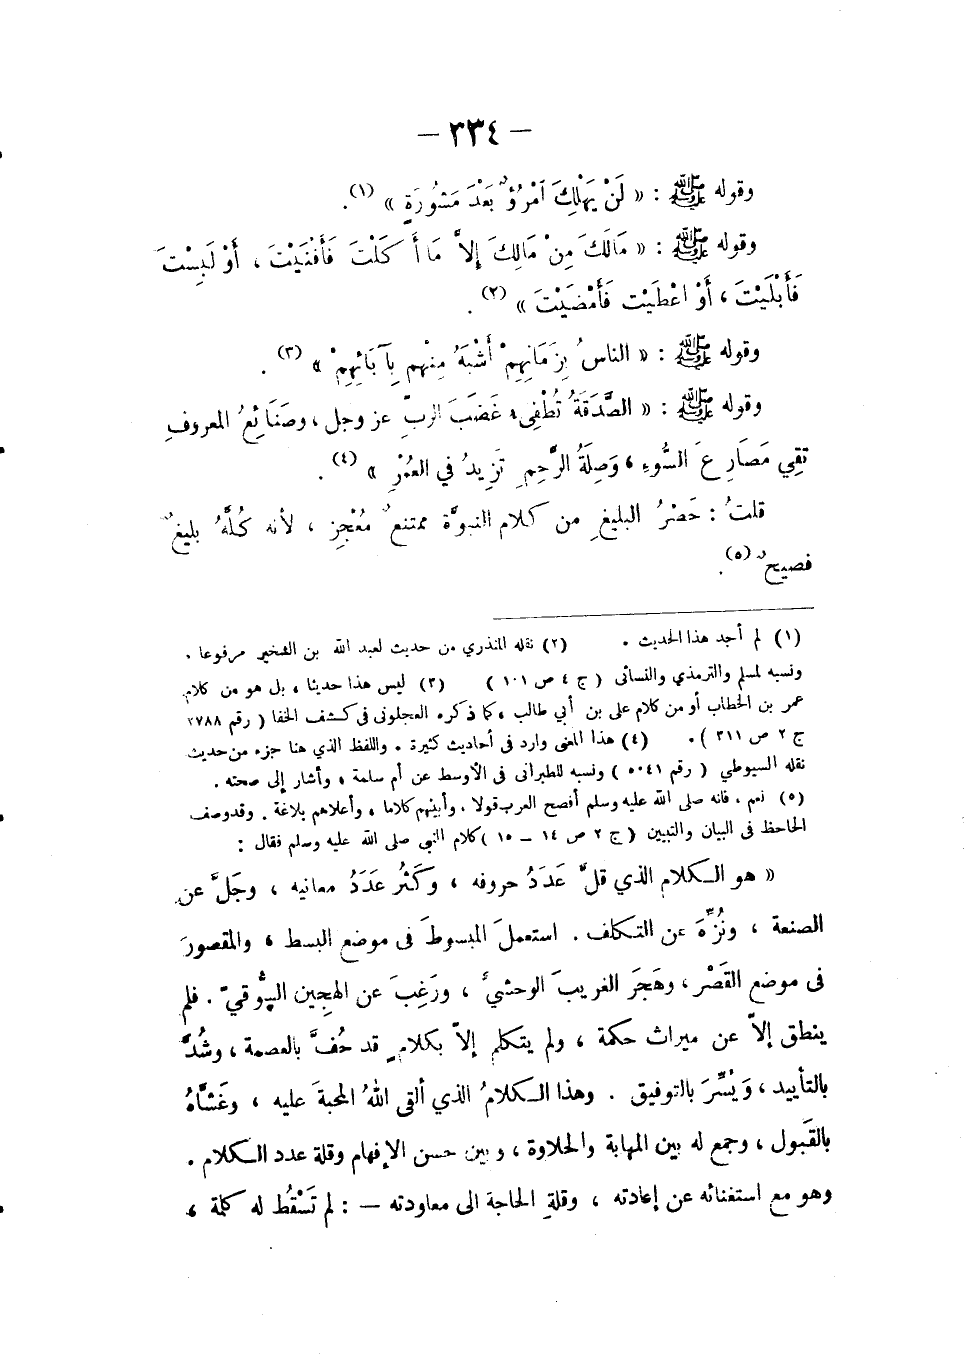 — ٣٣٤ —
وقوله ﷺ : « لَنْ يَهْلِكَ آمْرُؤٌ بَعْدَ مَشُورَةٍ » (١) .
وقوله ﷺ : « مَالَكَ مِنْ مَالِكَ إِلاَّ مَا أَ كَلْتَ فَأَفْنَيْتَ ، أَوْ لَبِسْتَ
فَأَبْلَيْتَ ، أَوْ اعْطَيْت فَأَمْضَيْتَ » (٢) .
وقوله ﷺ : « الناسُ بِزَمَانِهِمْ أَشْبَهُ مِنْهم بِآبَائِهِمْ » (٣) .
وقوله ﷺ : « الصَّدَقَةُ تُطْفِىء غَضَبَ الربِّ عز وجل ، وصَنَائِعُ المعروفِ
تقِي مَصَارِعَ السُّوءِ ، وَصِلَةُ الرَّحِمِ تَزِيدُ في العُمْرِ » (٤) .
قلتُ : حَصْرُ البليغِ من كلام النبوَّة ممتنعٌ مُعْجِز ، لأنه كُلَّهُ بليغٌ
فصيحٌ (٥) .
(١) لم أجد هذا الحديث . (٢) نقله المنذري من حديث لعبد الله بن الشخير مرفوعا .
ونسبه لمسلم والترمذي والنسائى ( ج ٤ ص ١٠١ ) (٣) ليس هذا حديثا ، بل هو من كلام
عمر بن الخطاب أو من كلام على بن أبي طالب ، كما ذكره العجلونى فى كشف الخفا ( رقم ٢٧٨٨
ج ٢ ص ٣١١ ) . (٤) هذا المعنى وارد فى أحاديث كثيرة . واللفظ الذي هنا جزء من حديث
نقله السيوطي ( رقم ٥٠٤١ ) ونسبه للطبرانى فى الأوسط عن أم سلمة ، وأشار إلى صحته .
(٥) نعم ، فانه صلى الله عليه وسلم أفصح العرب قولا . وأبينهم كلاما ، وأعلاهم بلاغة . وقد وصف
الجاحظ فى البيان والتبيين ( ج ٢ ص ١٤ – ١٥ ) كلام النبي صلى الله عليه وسلم فقال :
« هو الكلام الذي قلَّ عَدَدُ حروفه ، وكَثُر عَدَدُ معانيه ، وجَلَّ عن
الصنعة ، ونُزِّهَ عن التكلف . استعملَ المبسوطَ فى موضع البسط ، والمقصورَ
فى موضع القَصْر ، وهَجَرَ الغريبَ الوحشيَّ ، ورَغِبَ عن الهجِين السُّوقيّ . فلم
ينطق إلاّ عن ميراث حكمة ، ولم يتكلم إلاّ بكلامٍ قد حُفَّ بالعصمة ، وشُدَّ
بالتأييد ، وَيُسِّرَ بالتوفيق . وهذا الكلامُ الذي ألقى اللهُ المحبةَ عليه ، وغَشَّاهُ
بالقَبول ، وجمع له بين المهابة والحلاوة ، وبين حسن الإفهام وقلة عدد الكلام .
وهو مع استغنائه عن إعادته ، وقلةِ الحاجة الى معاودته — : لم تَسْقُط له كلمة ،